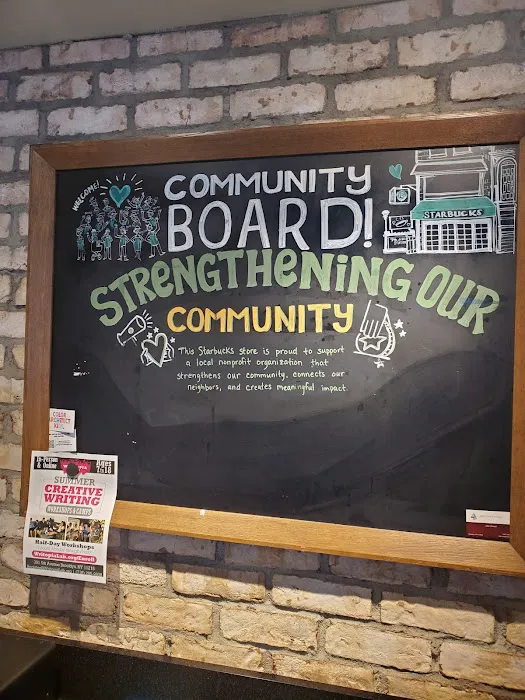 WELCOME!
COMMUNITY
BOARD!
STARBUCKS
STRENGTHENING OUR
COMMUNITY
This Starbucks store is proud to support
a local nonprofit organization that
strengthens our community, connects our
neighbors, and creates meaningful impact.
In-Person
& Online
Ages
SUMMER
CREATIVE
WRITING
WORKSHOPS & CAMPS
Half-Day Workshops
WritopiaLab.org/Enroll